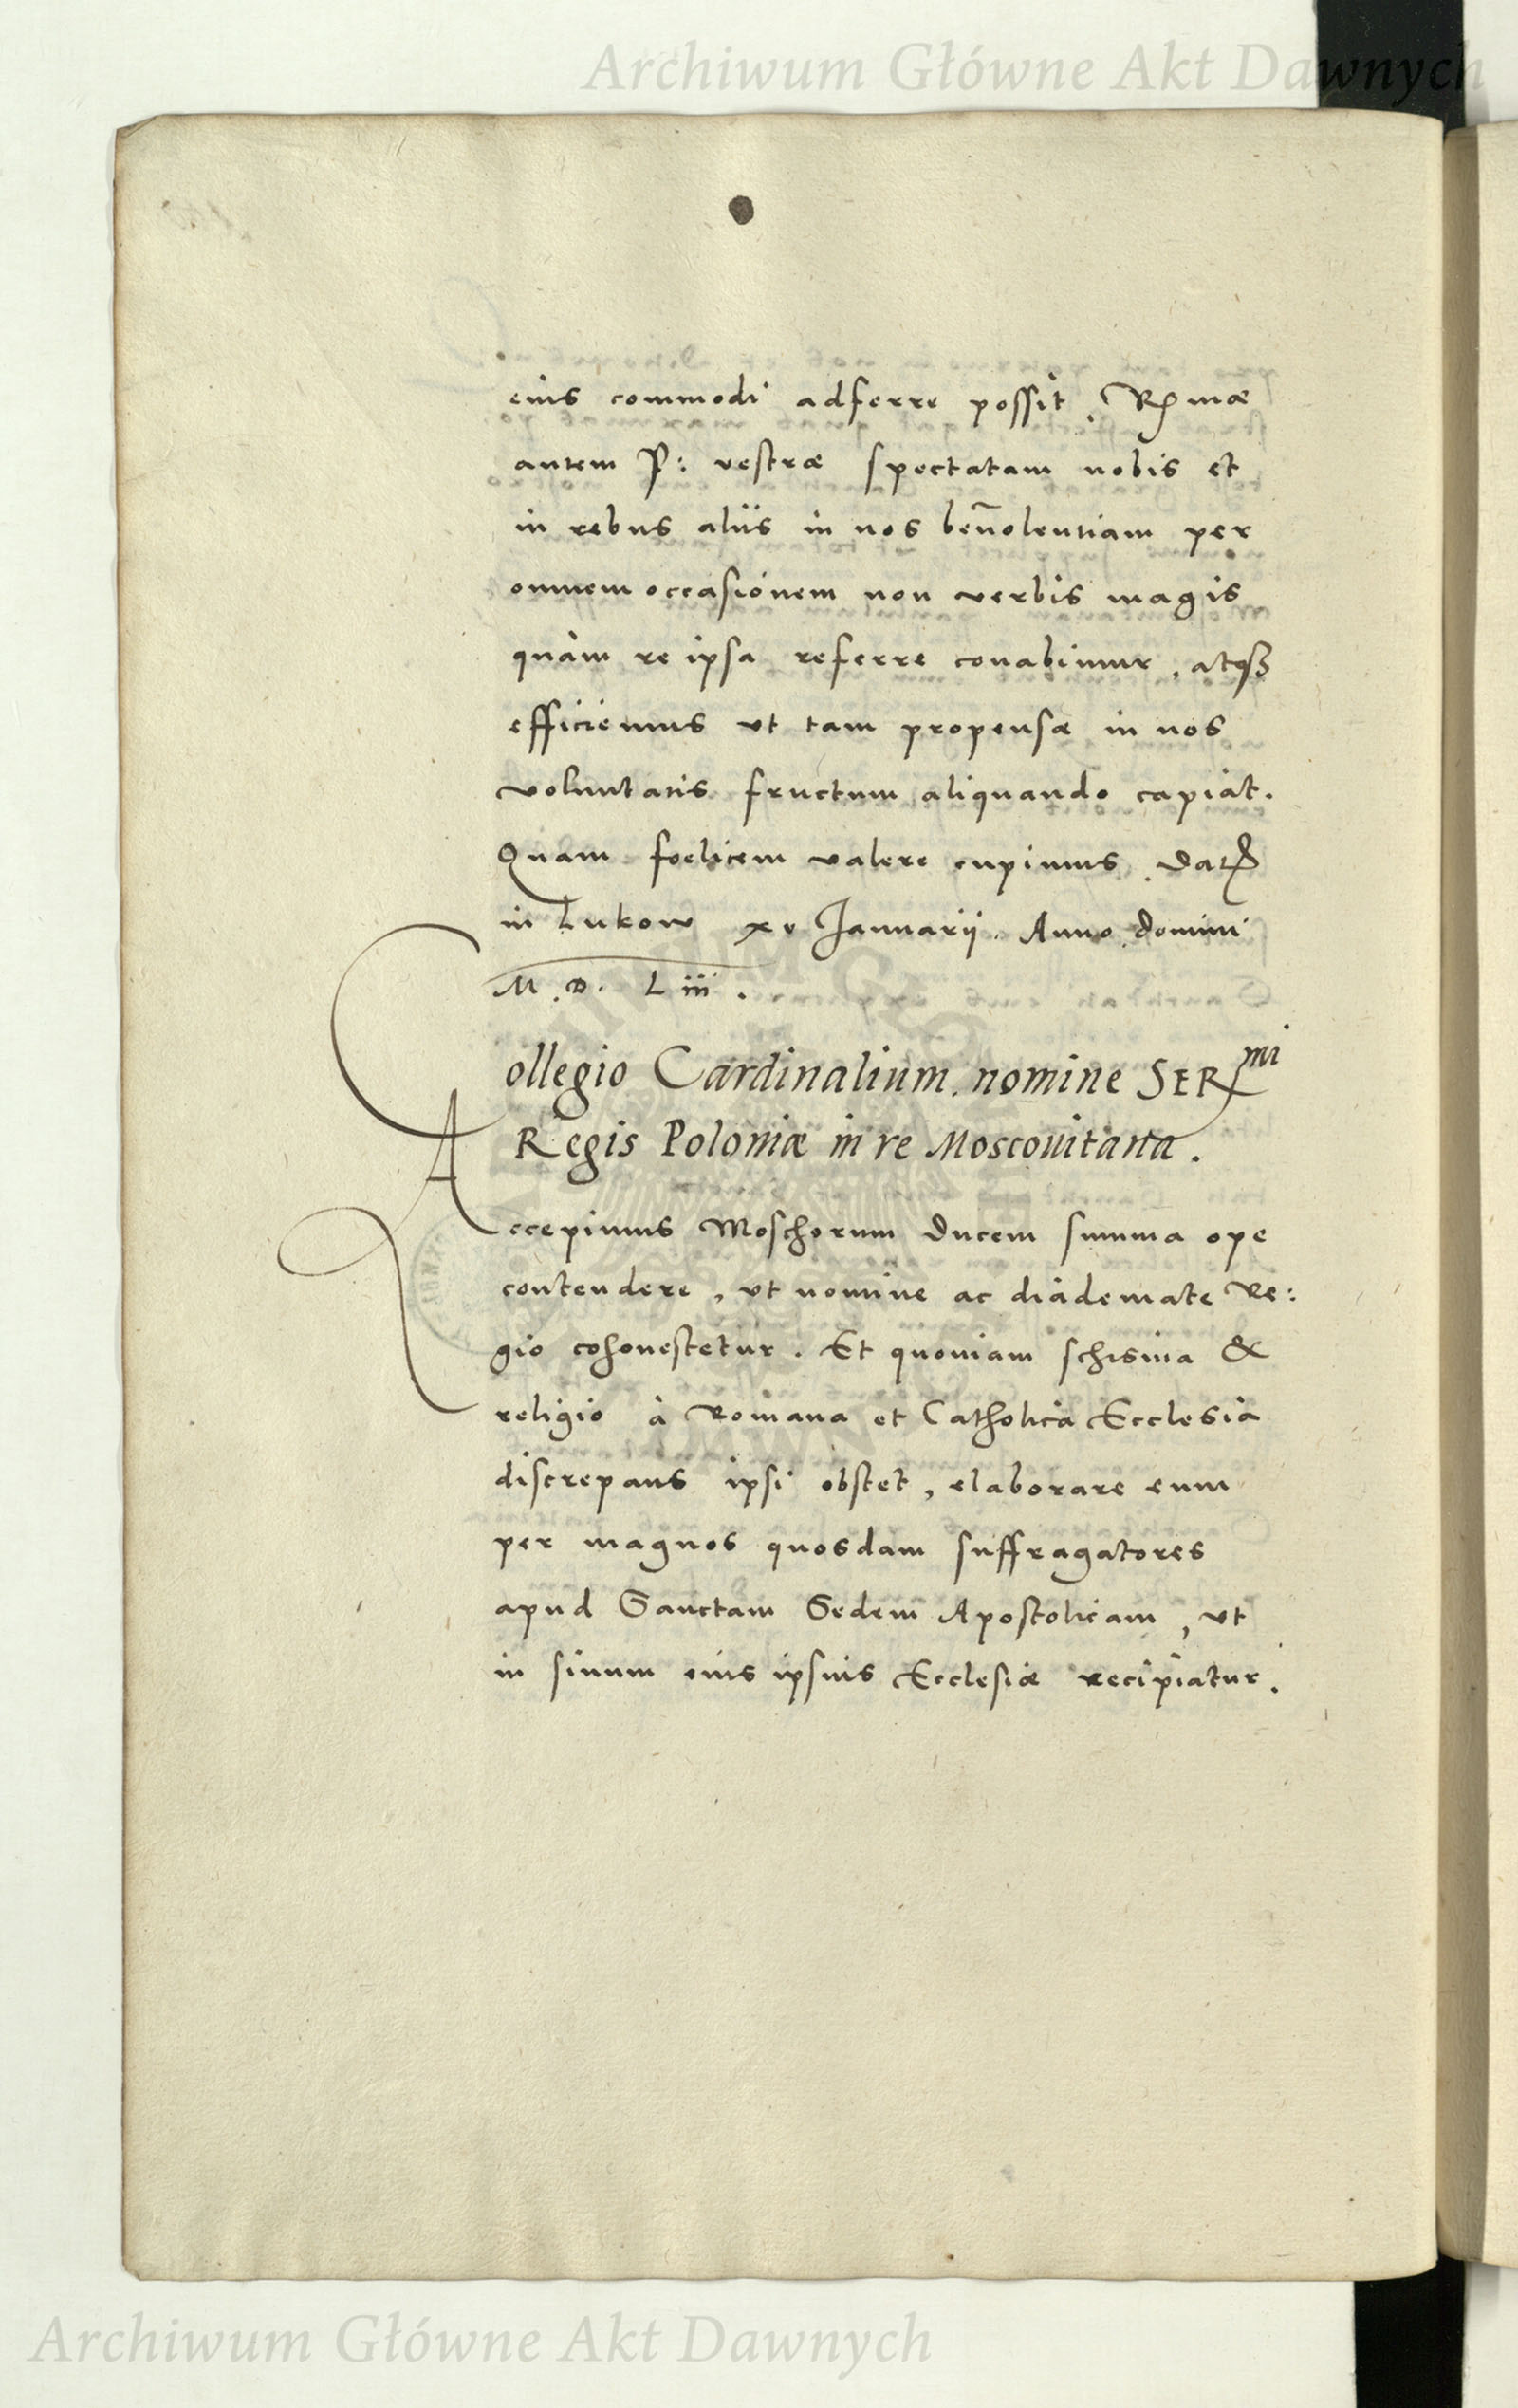 Archiwum Główne Akt Dawnych
eius commodi adferre possit. Rmæ
autem P: vestræ spectatam nobis et
in rebus aliis in nos beñolentiam per
omnem occasionem non verbis magis
quàm re ipsa referre conabimur, atq3
efficiemus ut tam propensæ in nos
voluntatis fructum aliquando capiat.
Quam foelicem valere cupimus. Dat
in Lukow xv Januarij. Anno domini
M.D. Liii.
Collegio Cardinalium. nomine SERmi
Regis Poloniæ in re Moscouitana.
Accepimus Moschorum Ducem summa ope
contendere, ut nomine ac diademate Re:
gio cohonestetur. Et quoniam schisma &
religio à Romana et Catholica Ecclesia
discrepans ipsi obstet, elaborare eum
per magnos quosdam suffragatores
apud Sanctam Sedem Apostolicam, ut
in sinum eius ipsius Ecclesiæ recipiatur.
Archiwum Główne Akt Dawnych